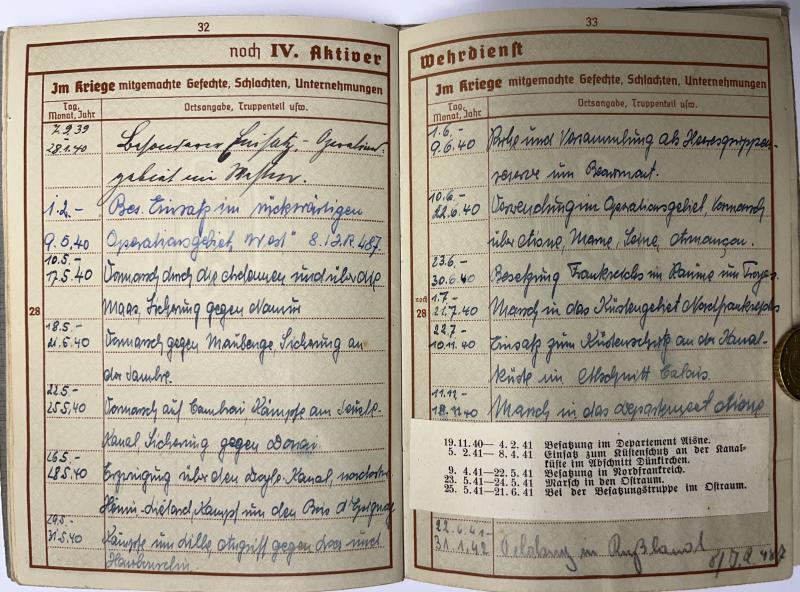 32
noch IV. Aktiver
Im Kriege mitgemachte Gefechte, Schlachten, Unternehmungen
Tag, Monat, Jahr
Ortsangabe, Truppenteil usw.
7.9.39
28.1.40
Besonderer Einsatz - Operations-
gebiet im Westen.
1.2.-
9.5.40
Bes. Einsatz im rückwärtigen
Operationsgebiet „West" 8. I.R. 487.
10.5.-
17.5.40
Vormarsch durch die Ardennen und über die
Maas, Sicherung gegen Namur
28
18.5.-
21.5.40
Vormarsch gegen Maubeuge, Sicherung an
der Sambre.
22.5.-
25.5.40
Vormarsch auf Cambrai, Kämpfe am
Kanal Sicherung gegen Douai
26.5.-
28.5.40
Erzwingung über den Kanal, nordostw.
Hénin-Liétard, Kampf um den Bois d'
29.5.-
31.5.40
Kämpfe um Lille Angriff gegen Loos und
Haubourdin
33
Wehrdienst
Im Kriege mitgemachte Gefechte, Schlachten, Unternehmungen
Tag, Monat, Jahr
Ortsangabe, Truppenteil usw.
1.6.-
9.6.40
Ruhe und Versammlung als Heeresgruppen-
reserve um Beaumont.
10.6.-
22.6.40
Verwendung im Operationsgebiet, Vormarsch
über Aisne, Marne, Seine, Armançon.
23.6.-
30.6.40
Besetzung Frankreichs im Raume um Troyes
noch 28
1.7.-
21.7.40
Marsch in das Küstengebiet Nordfrankreichs
22.7.-
10.11.40
Einsatz zum Küstenschutz an der Kanal-
küste im Abschnitt Calais.
11.11.-
18.11.40
Marsch in das Departement Aisne
19.11.40— 4. 2. 41 Besatzung im Departement Aisne.
5. 2.41— 8. 4.41 Einsatz zum Küstenschutz an der Kanal-
küste im Abschnitt Dünkirchen.
9. 4.41—22. 5.41 Besatzung in Nordfrankreich.
23. 5.41—24. 5.41 Marsch in den Ostraum.
25. 5.41—21. 6.41 Bei der Besatzungstruppe im Ostraum.
22.6.41-
31.1.42
Feldzug in Rußland